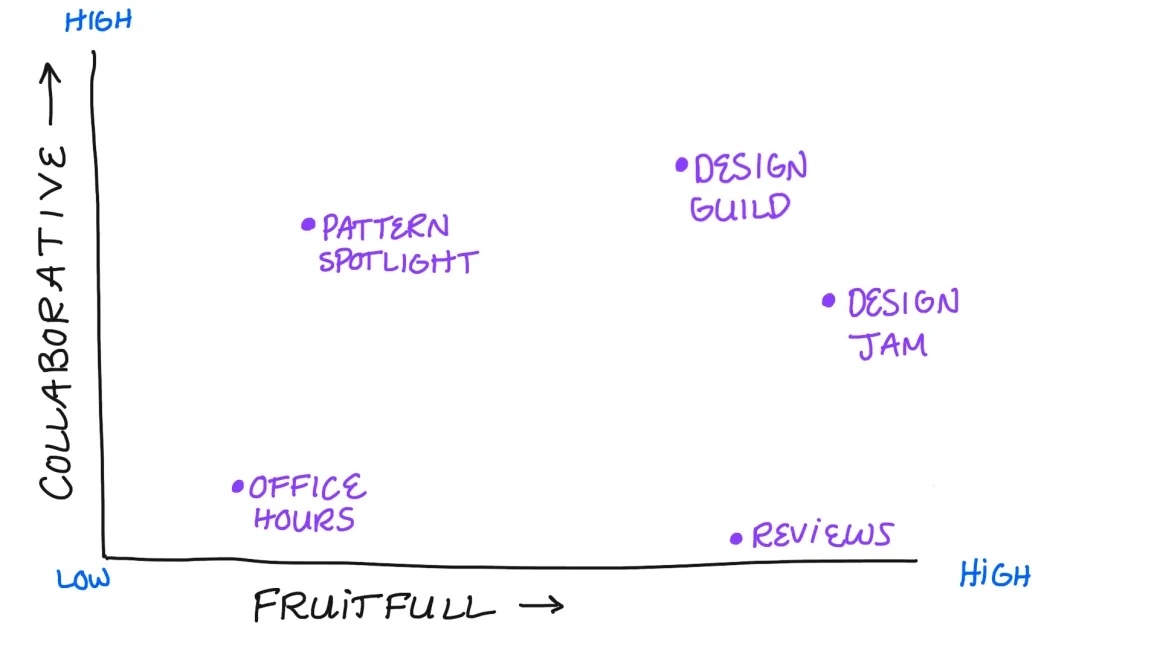 HIGH
COLLABORATIVE →
DESIGN
GUILD
PATTERN
SPOTLIGHT
DESIGN
JAM
OFFICE
HOURS
REViEWS
LOW
HiGH
FRUiTFULL →